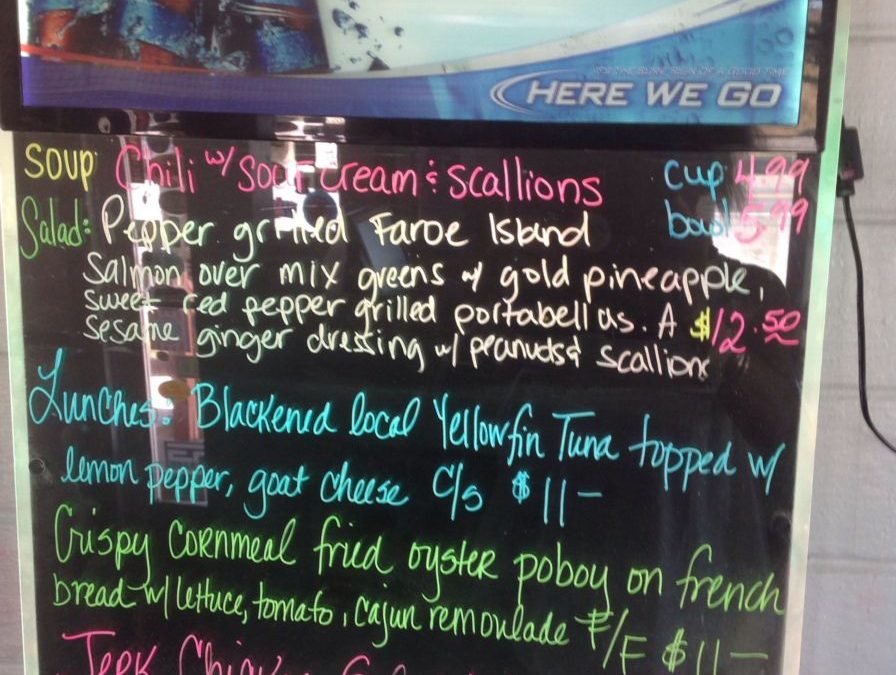 HERE WE GO
Soup: Chili w/ Sour Cream & Scallions cup 4.99
Salad: Pepper grilled Faroe Island bowl 5.99
Salmon over mix greens w/ gold pineapple,
sweet red pepper grilled portabellas. A $12.50
sesame ginger dressing w/ peanuds & scallions
Lunches: Blackened local Yellowfin Tuna topped w/
lemon pepper, goat cheese C/s $11-
Crispy cornmeal fried oyster poboy on french
bread w/ lettuce, tomato, cajun remoulade F/F $11-
Jerk